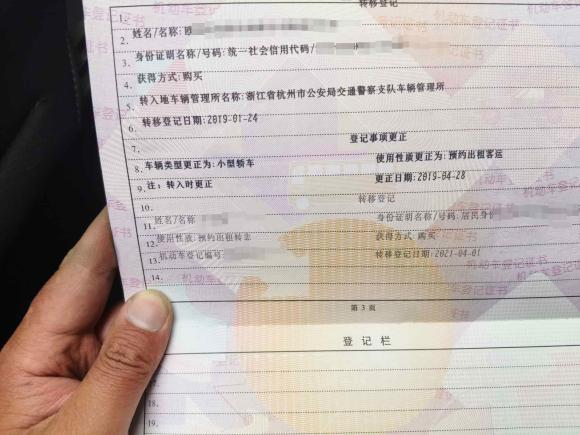 转移登记
1.
2. 姓名/名称:
3. 身份证明名称/号码:统一社会信用代码/
4. 获得方式:购买
5. 转入地车辆管理所名称:浙江省杭州市公安局交通警察支队车辆管理所
6. 转移登记日期:2019-01-24
7. 登记事项更正
8. 车辆类型更正为:小型轿车 使用性质更正为:预约出租客运
9. 注: 转入时更正 更正日期:2019-04-28
10. 转移登记
11. 姓名/名称 身份证明名称/号码:居民身
12. 使用性质:预约出租转非 获得方式:购买
13. 机动车登记编号 转移登记日期:2021-04-01
14.
第 3 页
登 记 栏
15.
17.
18.
19.
机动车登记证书